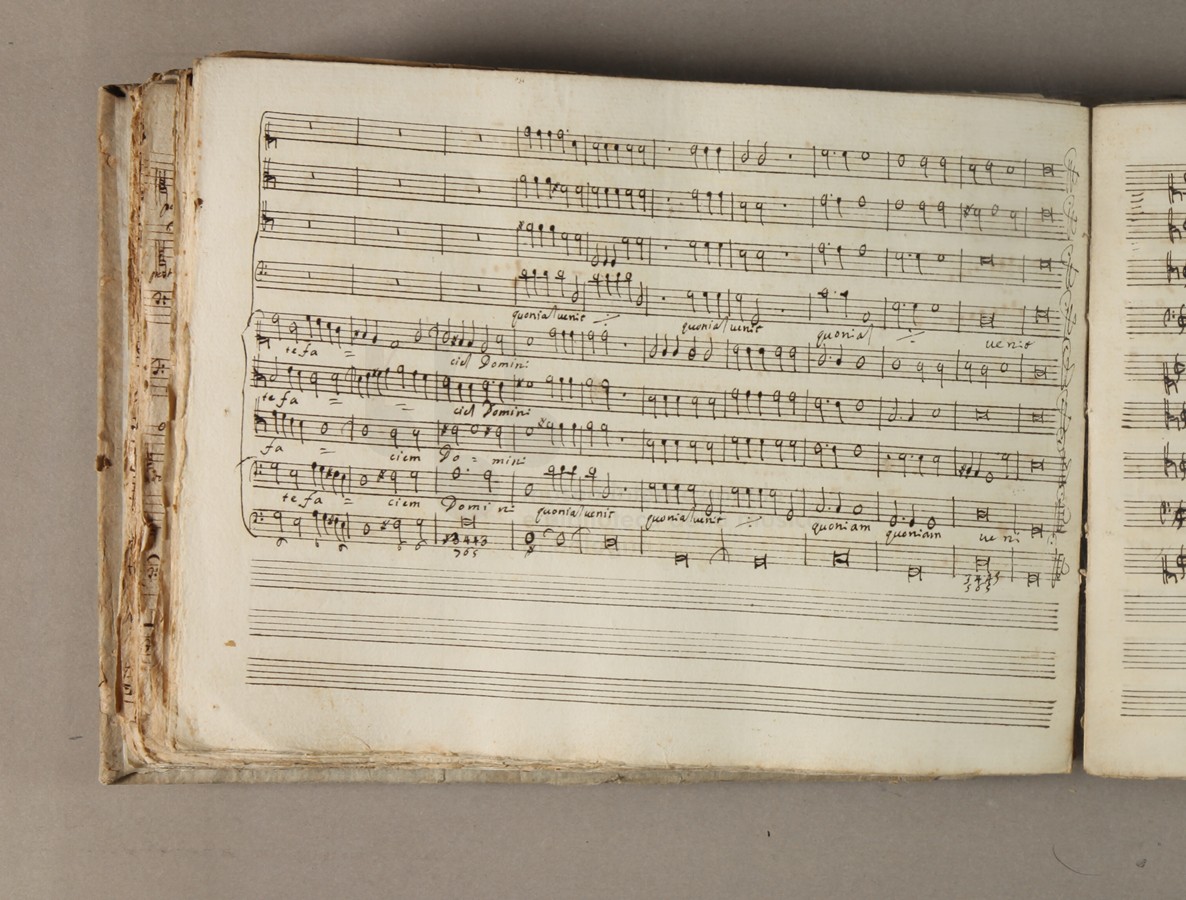 quonia venit quonia venit quonia venit
te fa ciē Domini
te fa ciē Domini
fa ciem Do = mini
te fa = ciem Domini quonia venit quonia venit quoniam quoniam veni